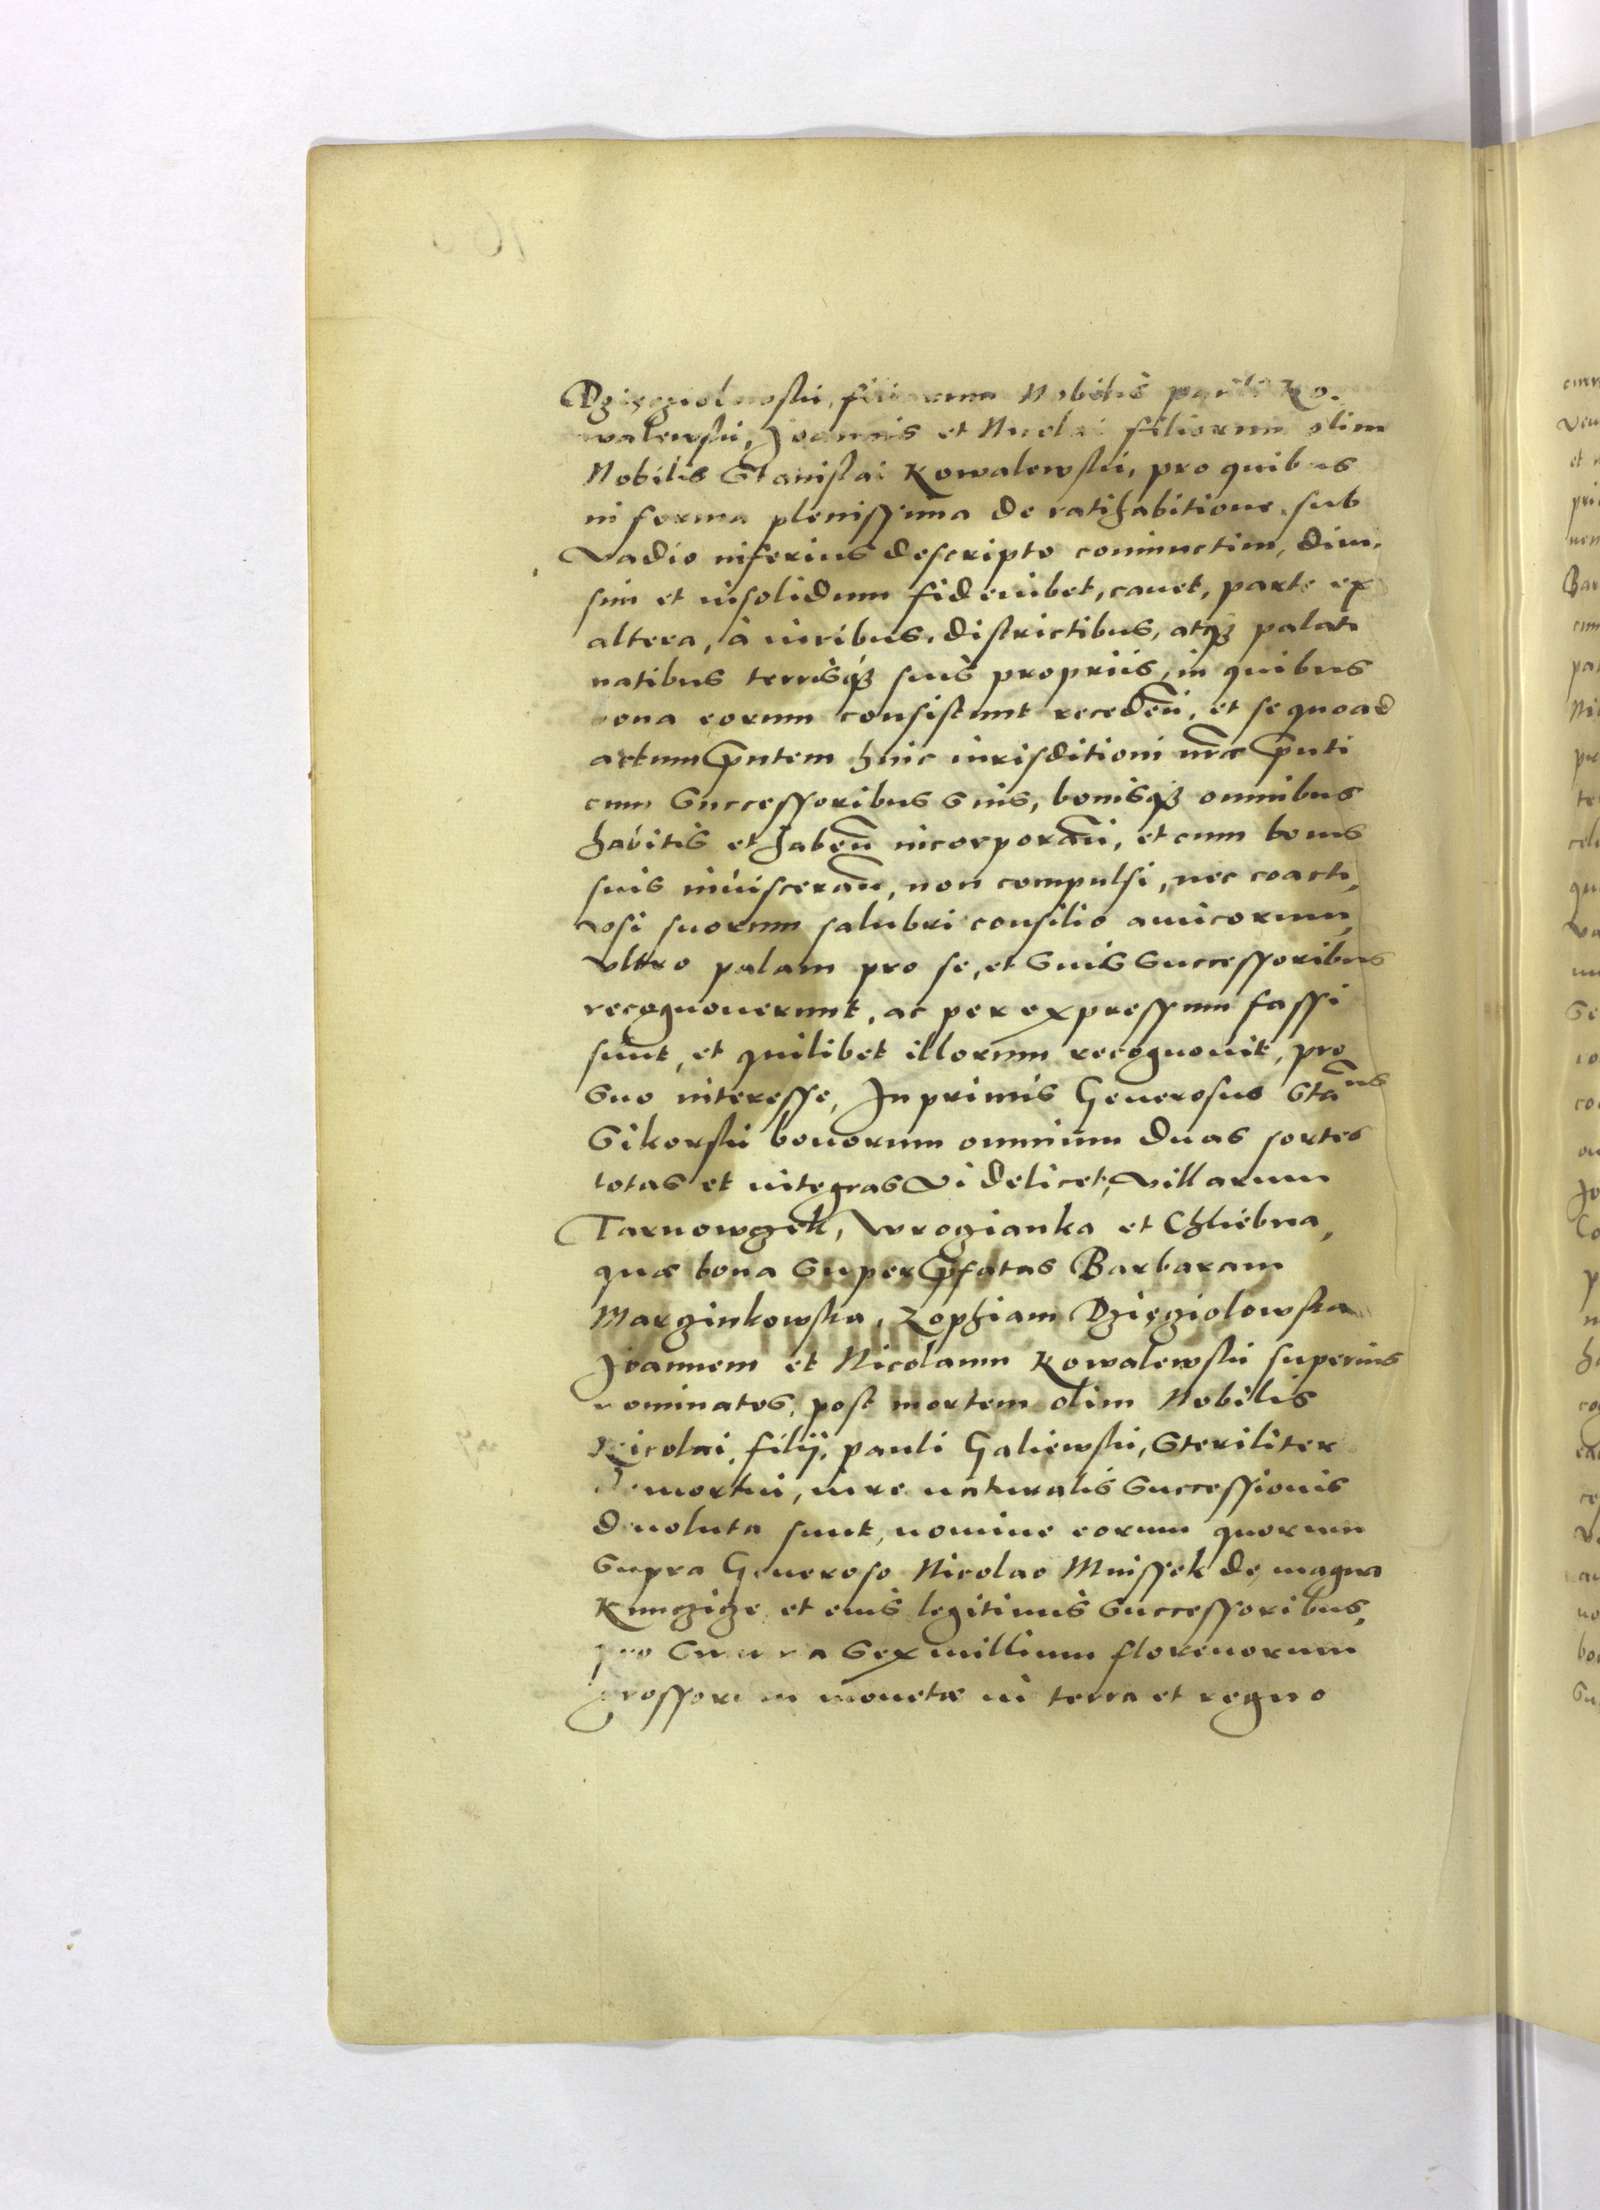 Dzięgiolowski, filiorum Nobilis pauli Ko.
walewski, Joannis et Nicolai filiorum olim
Nobilis Stanislai Kowalewski, pro quibus
in forma plenissima de ratihabitione sub
Vadio inferius descripto coniunctim, diui.
sim et insolidum fideiubet, cauet, parte ex
altera, à iuribus, districtibus, atq₃ palati
natibus terrisq₃ suis proprijs, in quibus
bona eorum consistunt recedeñ, et se quoad
actum pñtem huic iurisditioni nr̃æ pñti
cum Successoribus suis, bonisq₃ omnibus
habitis et habeñ incorporañ, et cum bonis
suis inuiscerañ, non compulsi, nec coacti,
vsi suorum salubri consilio amicorum,
vltro palam pro se, et suis Successoribus
recognouerunt, ac per expressum fassi
sunt, et quilibet illorum recognouit, pro
Suo interesse, In primis Generosus Stãus
Sikorski bonorum omnium duas sortes
totas et integras Videlicet, villarum
Tarnowczek, Wrogianka et Chliebna,
quæ bona Super pr̃fatas Barbaram
Marginkowska, Zophiam Dzięgiolowska
Joannem et Nicolaum Kowalewski superius
nominatos, post mortem olim Nobilis
Nicolai, filij, pauli Galiewski, Steriliter
demortui, iure naturalis Successionis
deuoluta sunt, nomine eorum quorum
Supra Generoso Nicolao Mnissek de magna
Kunczicze et eius legitimis Successoribus,
pro Summa Sex millium florenorum
grossorum monetæ in terra et regno